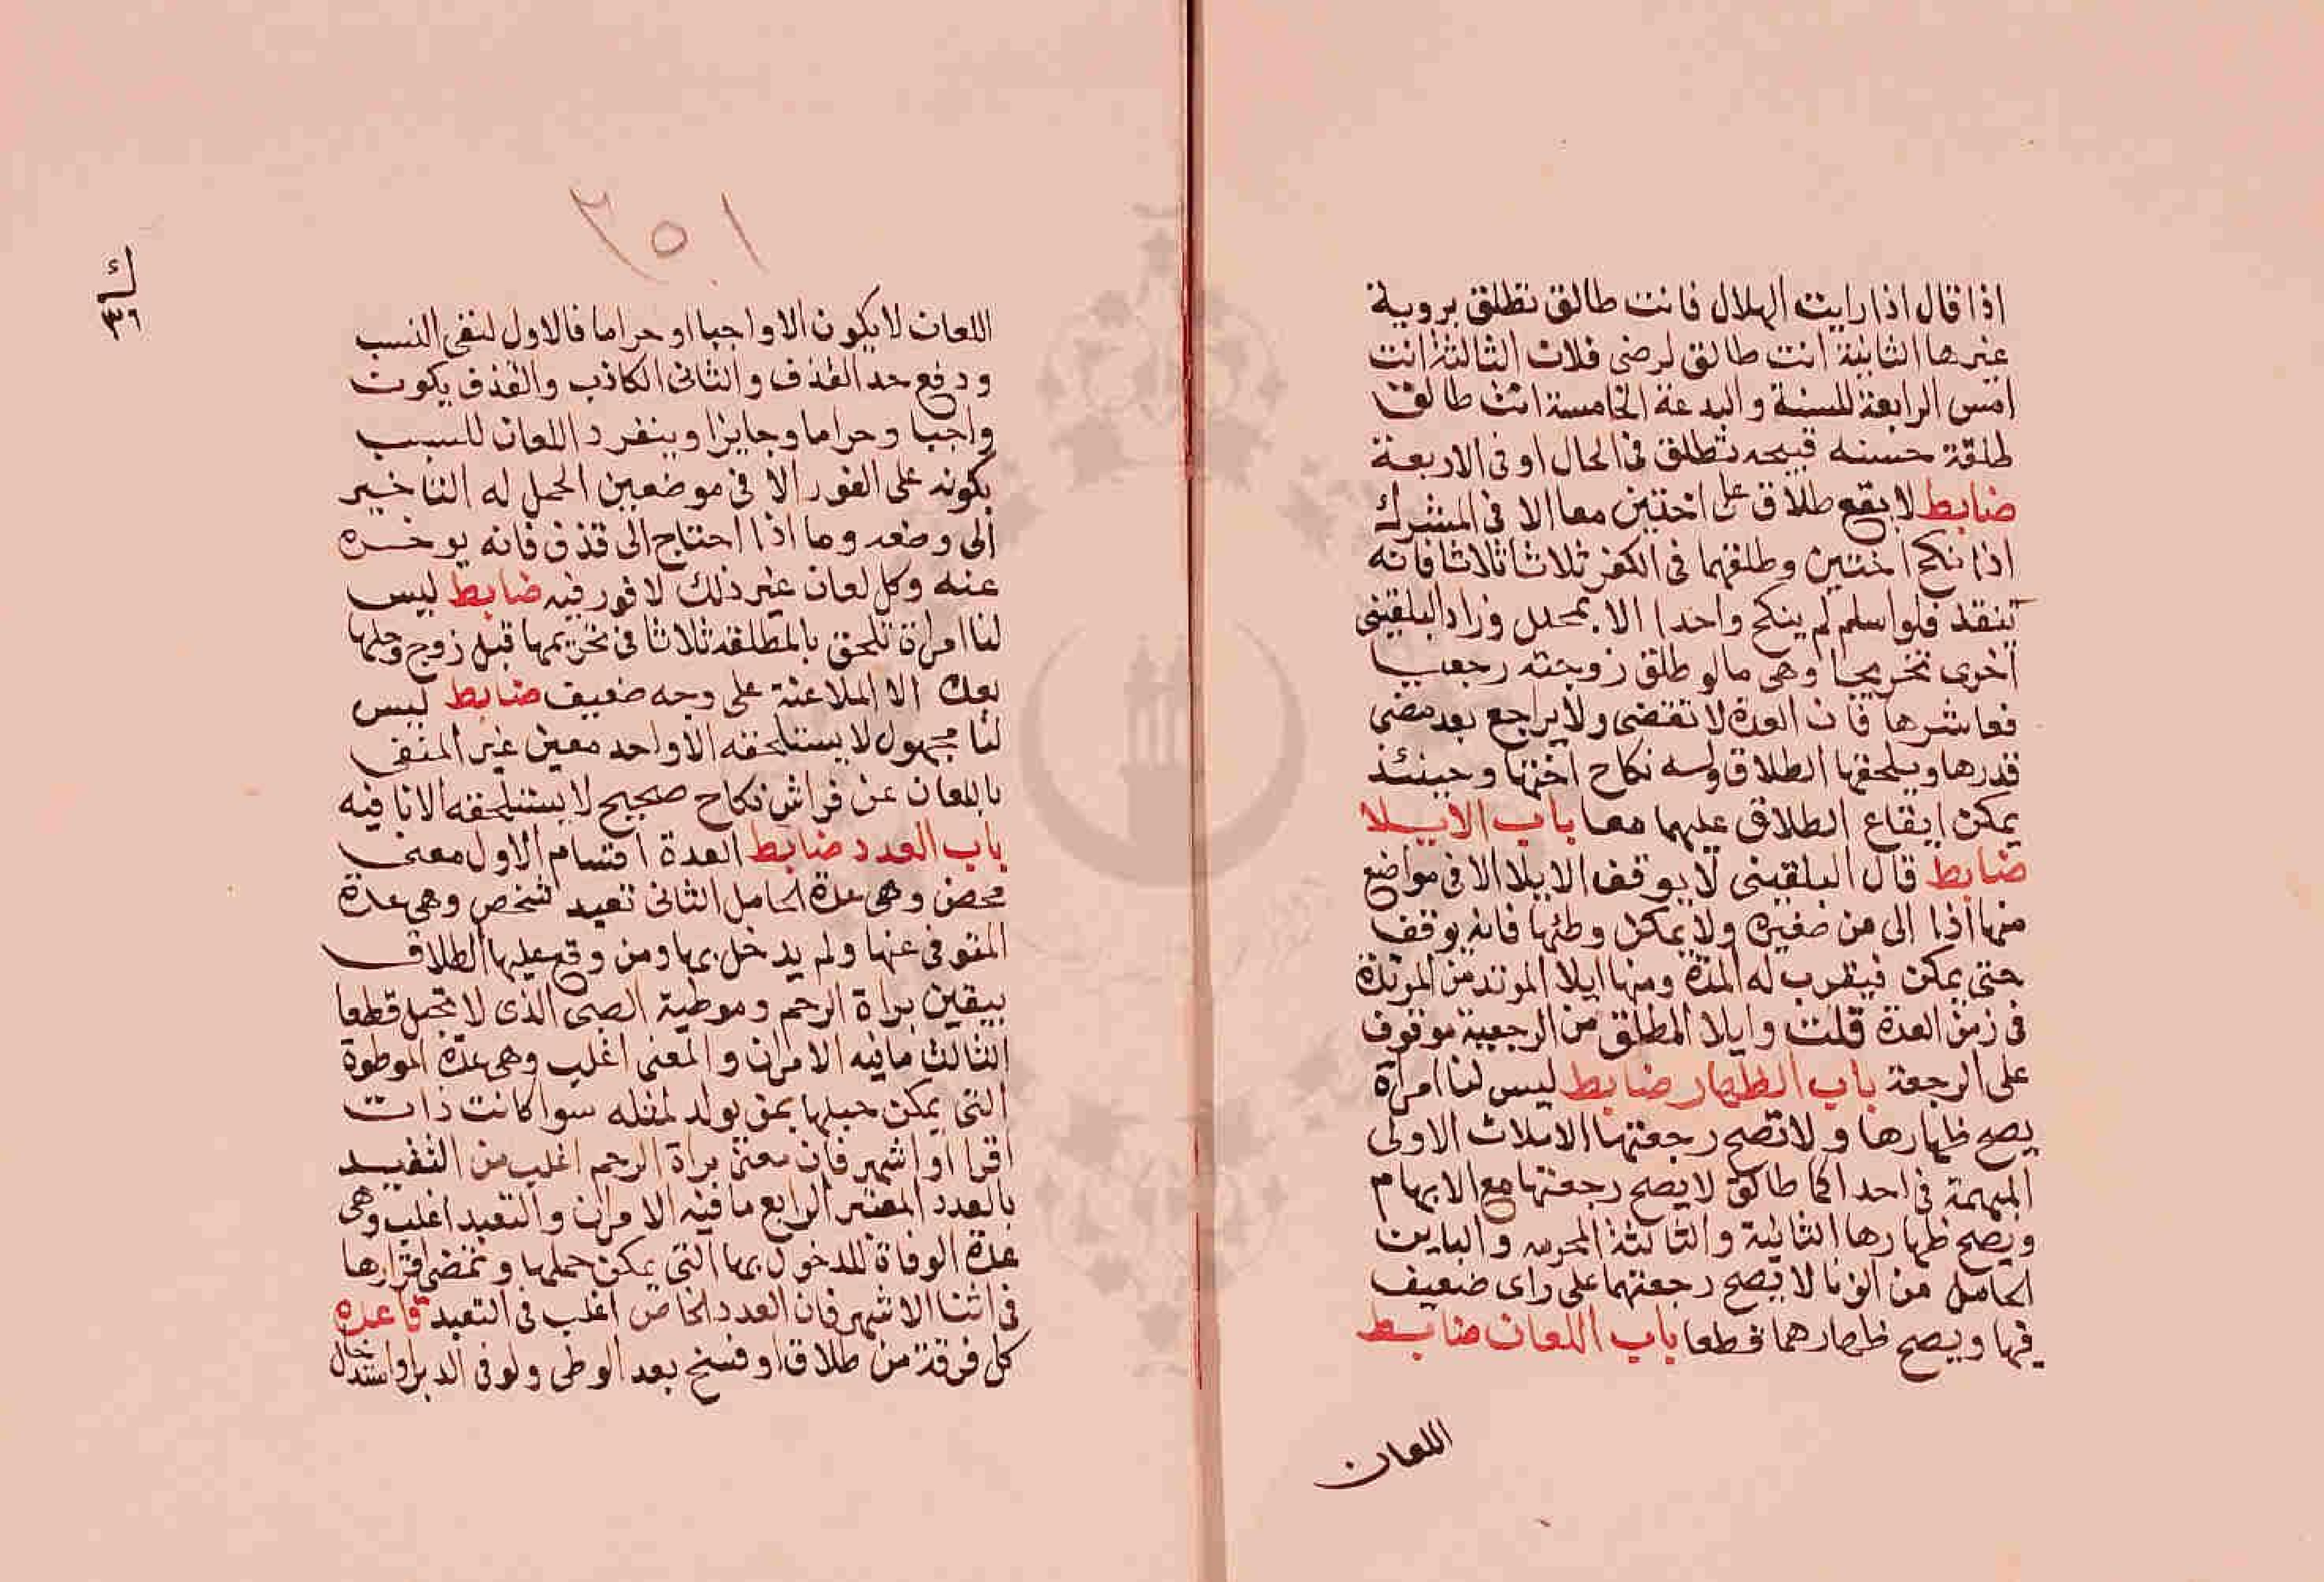 اذا قال اذا رايت الهلال فانت طالق تطلق بروية
غيرها الثانية انت طالق لرضى فلان الثالثة انت
امس الرابعة للسنة والبدعة الخامسة انت طالق
طلقة حسنه قبيحه تطلق فى الحال او فى الاربعة
ضابط لا يقع طلاق على اختين معا الا فى المشرك
اذا نكح اختين وطلقهما فى الكفر ثلاثا ثلاثا فانه
ينفذ فلو اسلم لم ينكح واحدا الا بمحلل وزاد البلقينى
اخرى تخريجا وهى ما لو طلق زوجته رجعيا
فعاشرها فان العدة لا تقضى ولا يراجع بعد مضى
قدرها ويلحقها الطلاق وله نكاح اختها وحينئذ
يمكن ايقاع الطلاق عليهما معا باب الايلا
ضابط قال البلقينى لا يوقف الايلا الا فى مواضع
منها اذا الى من صغيره ولا يمكن وطئها فانه يوقف
حتى يمكن فيضرب له المدة ومنها ايلا المرتد من المرتدة
فى زمن العدة قلت وايلا المطلق من الرجعية موقوف
على الرجعة باب الظهار ضابط ليس لنا امراة
يصح ظهارها ولا تصح رجعتها الا ثلاث الاولى
المبهمة فى احداكما طالق لا يصح رجعتها مع الابهام
ويصح ظهارها الثانية والثالثة المحرمه والباين
الحامل من الزنا لا يصح رجعتهما على راى ضعيف
فيها ويصح ظهارهما قطعا باب اللعان ضابط
اللعان
٣٥١
ك
٣٦
اللعان لا يكون الا واجبا او حراما فالاول لنفى النسب
ودفع حد القذف والثانى الكاذب والقذف يكون
واجبا وحراما وجايزا وينفرد اللعان للسبب
بكونه على الفور الا فى موضعين الحمل له التاخير
الى وضعه وما اذا احتاج الى قذف فانه يوخره
عنه وكل لعان غير ذلك لا فور فيه ضابط ليس
لنا امراة تلحق بالمطلقه ثلاثا فى تحريمها قبل زوج وحلها
بعده الا الملاعنة على وجه ضعيف ضابط ليس
لنا مجهول لا يستلحقه الا واحد معين غير المنفى
باللعان عن فراش نكاح صحيح لا يستلحقه الا نافيه
باب العدد ضابط العدة اقسام الاول معنى
محض وهى عدة الحامل الثانى تعبد شخص وهى عدة
المتوفى عنها ولم يدخل بها ومن وقع عليها الطلاق
بيقين براة الرحم وموطية الصبى الذى لا تحمل قطعا
الثالث ما فيه الامران والمعنى اغلب وهى عدة الموطوة
التى يمكن حبلها بمن يولد لمثله سوا كانت ذات
اقرا او اشهر فان معنى براة الرحم اغلب من التعبد
بالعدد المعتبر الرابع ما فيه الامران والتعبد اغلب وهى
عدة الوفاة للدخول بها التى يمكن حملها وتمضى اقرارها
فى اثنا الاشهر فان العدد الخاص اغلب فى التعبد قاعده
كل فرقة من طلاق او فسخ بعد الوطى ولو فى الدبر او استدخال